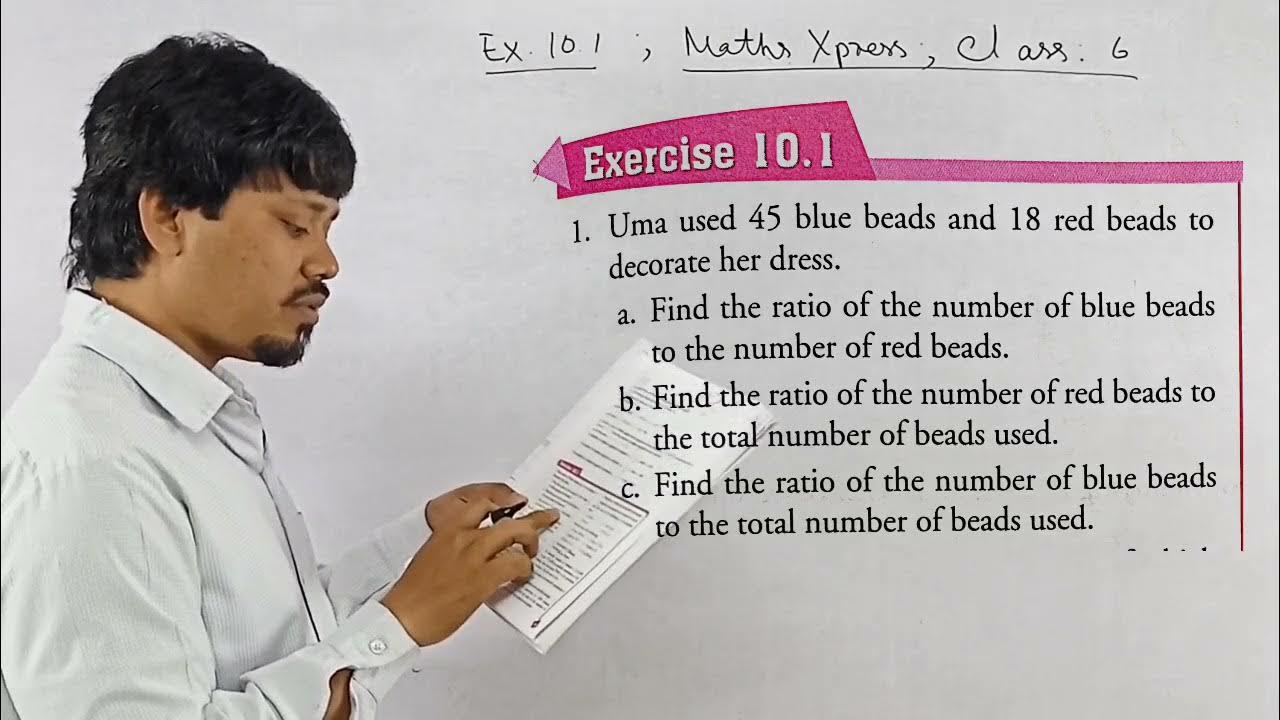 Ex. 10.1 ; Maths Xpress, Class: 6
Exercise 10.1
1. Uma used 45 blue beads and 18 red beads to
decorate her dress.
a. Find the ratio of the number of blue beads
to the number of red beads.
b. Find the ratio of the number of red beads to
the total number of beads used.
c. Find the ratio of the number of blue beads
to the total number of beads used.